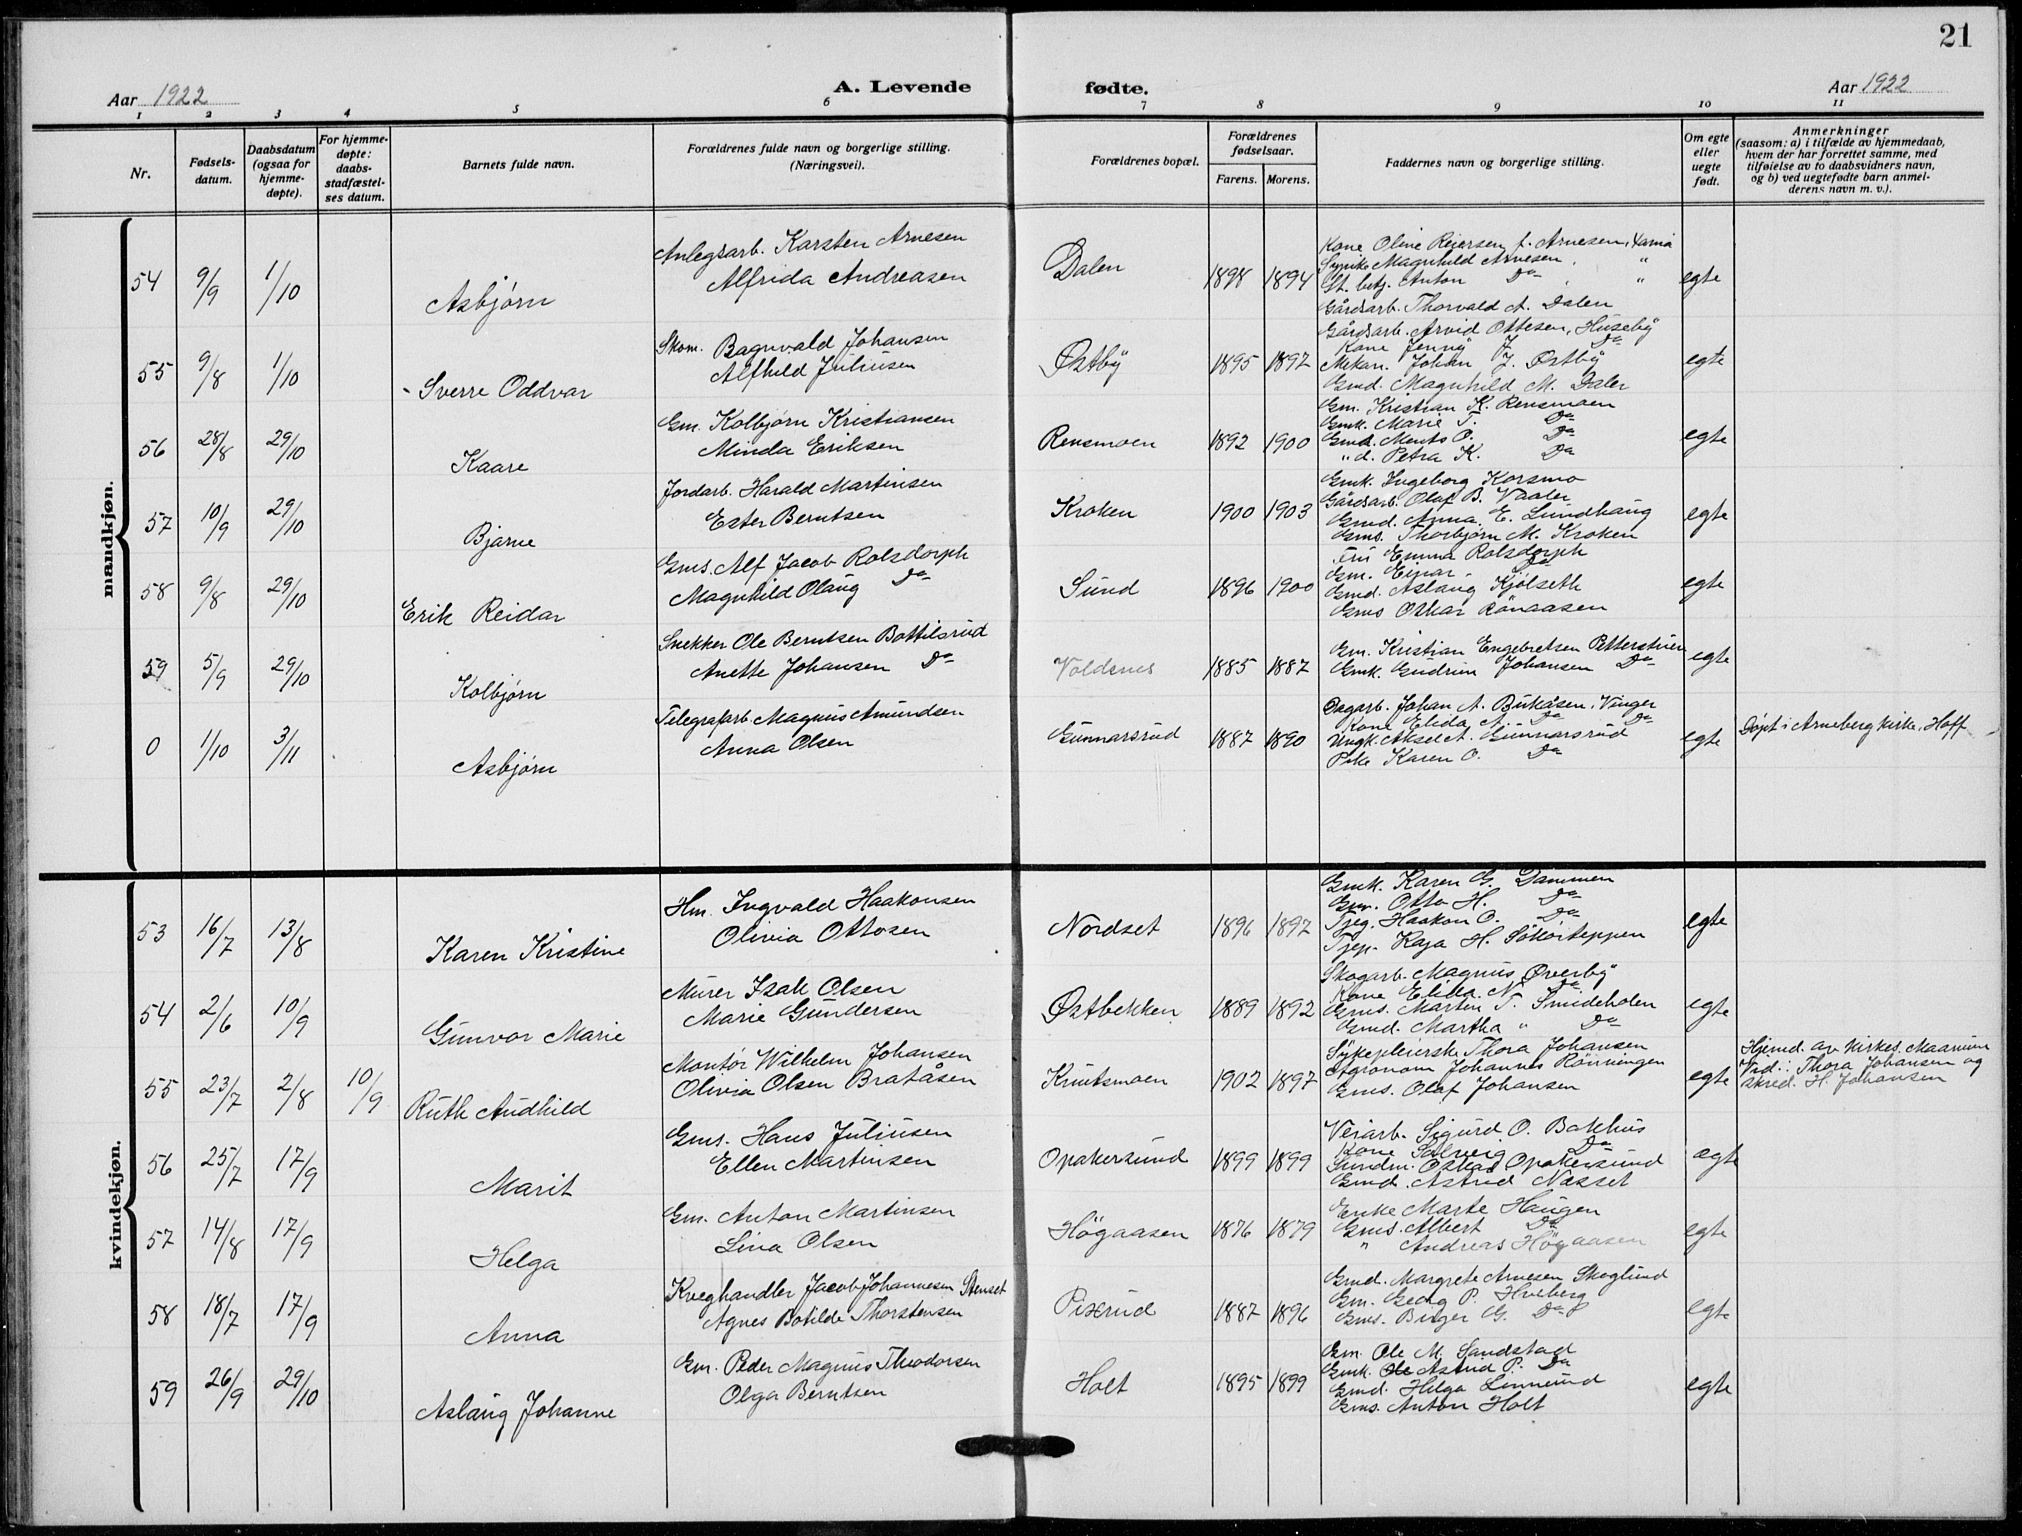 21
Aar 1922
A. Levende
fødte.
Aar 1922
1 2 3 4 5 6 7 8 9 10 11
Nr.
Fødsels-
datum.
Daabsdatum
(ogsaa for
hjemme-
døpte).
For hjemme-
døpte:
daabs-
stadfæstel-
ses datum.
Barnets fulde navn.
Forældrenes fulde navn og borgerlige stilling.
(Næringsvei).
Forældrenes bopæl.
Forældrenes
fødselsaar.
Farens. Morens.
Faddernes navn og borgerlige stilling.
Om egte
eller
uegte
født.
Anmerkninger
(saasom: a) i tilfælde av hjemmedaab,
hvem der har forrettet samme, med
tilføielse av to daabsvidners navn,
og b) ved uegtefødte barn anmel-
derens navn m. v.).
mandkjøn.
54 9/9 1/10 Asbjørn
Anlegsarb. Karsten Arnesen
Alfrida Andreasen
Dalen 1898 1894
Kone Oline Reiersen f. Arnesen,
Magnhild Arnesen, "
St. betj. Anton Do "
Gårdsarb. Thorvald A. Dalen
egte
55 9/8 1/10 - Sverre Oddvar
Skom. Bagnvald Johansen
Alfhild Juliusen
Østby 1895 1897
Gårdsarb. Arvid Ottesen, Huseby
Kone Jenny J. Do
Mekan. Johan J. Østby
Gmd. Magnhild M. Dalen
egte
56 28/8 29/10 Kaare
Gm. Kolbjørn Kristiansen
Minda Eriksen
Rensmoen 1892 1900
Gm. Kristian K. Rensmoen
Gmk. Marie T. Do
Gmd. Ments O. Do
"d. Petra K. Do
egte
57 10/9 29/10 Bjarne
Jordarb. Harald Martinsen
Ester Berntsen
Kroken 1900 1903
Gmk. Ingeborg Korsmo
Gårdsarb. Olaf B. Vaaler
Gmd. Anna E. Lundhaug
Gms. Thorbjørn M. Kroken
egte
58 9/8 29/10 Erik Reidar
Gms. Alf Jacob Rolsdorph
Magnhild Olaug Do
Sund 1896 1900
Fru Emma Rolsdorph
Gm. Einar Do
Gmd. Aslaug Kjølseth
Gms Oskar Rönaasen
egte
59 5/9 29/10 Kolbjørn
Snekker Ole Berntsen Bottilsrud
Anette Johansen Do
Voldsnes 1885 1887
Gm. Kristian Engebretsen Petterstuen
Gmk. Gudrun Johansen Do
egte
0 1/10 3/11 Asbjørn
Telegrafarb. Magnus Amundsen
Anna Olsen
Gunnarsrud 1887 1890
Dagarb. Johan A. Bukåsen, Vinger
Kone Elida A. Do Do
Ungk. Aksel A. Gunnarsrud
Pike Karen O. Do
egte
Døpt i Arneberg kirke, Hoff
kvindekjøn.
53 16/7 13/8 Karen Kristine
Hm. Ingvald Haakonsen
Olivia Ottosen
Nordset 1896 1897
Gmk. Karen G. Dammen
Gm. Otto H. Do
Tjeg. Haakon O. Do
Tjep. Kaja H.
egte
54 2/6 10/9 Gunvor Marie
Murer Isak Olsen
Marie Gundersen
Østbekken 1889 1892
Skogarb. Magnus Øverby
Kone Elida N. Do
Gms. Martin T. Smideholen
Gmd. Martha " Do
egte
55 23/7 2/8 10/9 Ruth Audhild
Montør Wilhelm Johansen
Olivia Olsen Bratåsen
Knutsmoen 1902 1897
Sykepleierske Thora Johansen
Agronom Johannes Rönningen
Gms. Olaf Johansen
egte
Hjemd. av kirkes. Maanum
Vid.: Thora Johansen og
H. Johansen
56 25/7 17/9 Marit
Gms. Hans Juliusen
Ellen Martinsen
Opakersund 1899 1899
Veiarb. Sigurd O. Bakhus
Kone Solveig Do
Sundm. Oskar Opakersund
Gmd. Astrid Næsset
ægte
57 14/8 17/9 Helga
Gm. Anton Martinsen
Lina Olsen
Högaasen 1876 1879
Enke Marte Haugen
Gms. Albert Do
" Andreas Högaasen
egte
58 18/7 17/9 Anna
Kveghandler Jacob Johannesen Stenset
Agnes Botilde Thorstensen
Pixrud 1887 1896
Gmd. Margrete Arnesen Skoglund
Gm. Georg P. Hveberg
Gms. Birger G. Do
egte
59 26/9 29/10 Aslaug Johanne
Gm. Peder Magnus Theodorsen
Olga Berntsen
Holt 1895 1899
Gm. Ole M. Sandstad
Gmk. Ole Astrid P. Do
Gmd. Helga Linnerud
Gms. Anton Holt
egte